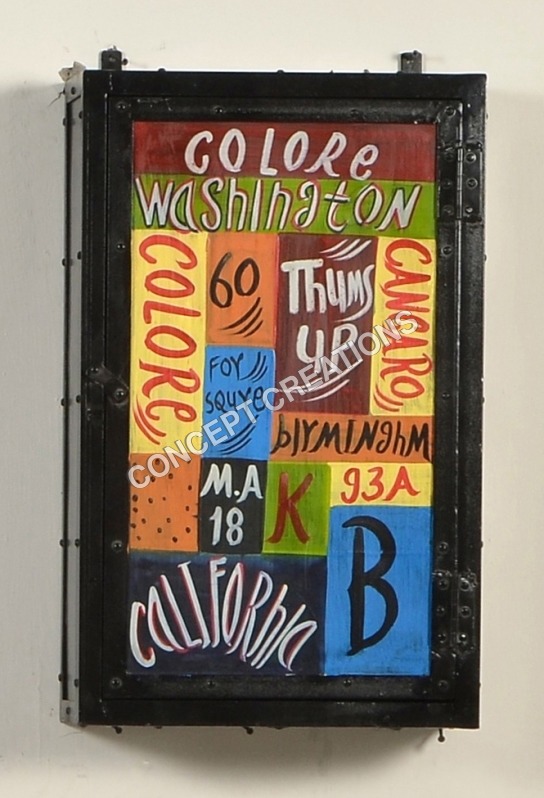 COLORe
WaShINgtON
COLORe
60
Thums
UP
CANGARO
FOY
SQUYe
bIYMINghM
M.A
18
K
93A
B
CALIFORNIA
CONCEPT CREATIONS